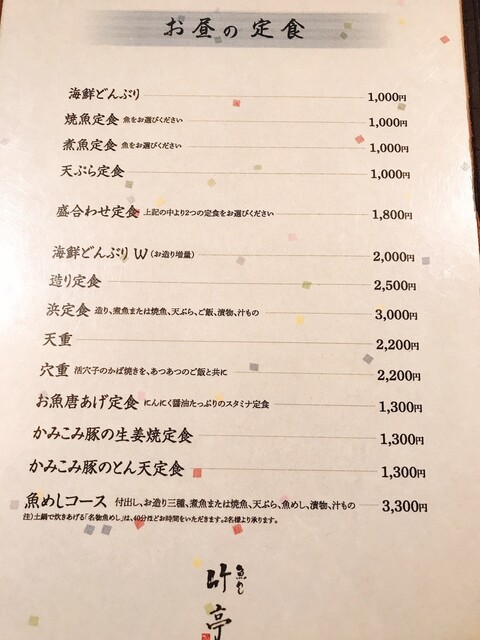 お昼の定食
海鮮どんぶり 1,000円
焼魚定食 魚をお選びください 1,000円
煮魚定食 魚をお選びください 1,000円
天ぷら定食 1,000円
盛合わせ定食 上記の中より2つの定食をお選びください 1,800円
海鮮どんぶり W (お造り増量) 2,000円
造り定食 2,500円
浜定食 造り、煮魚または焼魚、天ぷら、ご飯、漬物、汁もの 3,000円
天重 2,200円
穴重 活穴子のかば焼きを、あつあつのご飯と共に 2,200円
お魚唐あげ定食 にんにく醤油たっぷりのスタミナ定食 1,300円
かみこみ豚の生姜焼定食 1,300円
かみこみ豚のとん天定食 1,300円
魚めしコース 付出し、お造り三種、煮魚または焼魚、天ぷら、魚めし、漬物、汁もの 3,300円
注)土鍋で炊きあげる「名物魚めし」は、40分ほどお時間をいただきます。2名様より承ります。
魚めし
叶亭